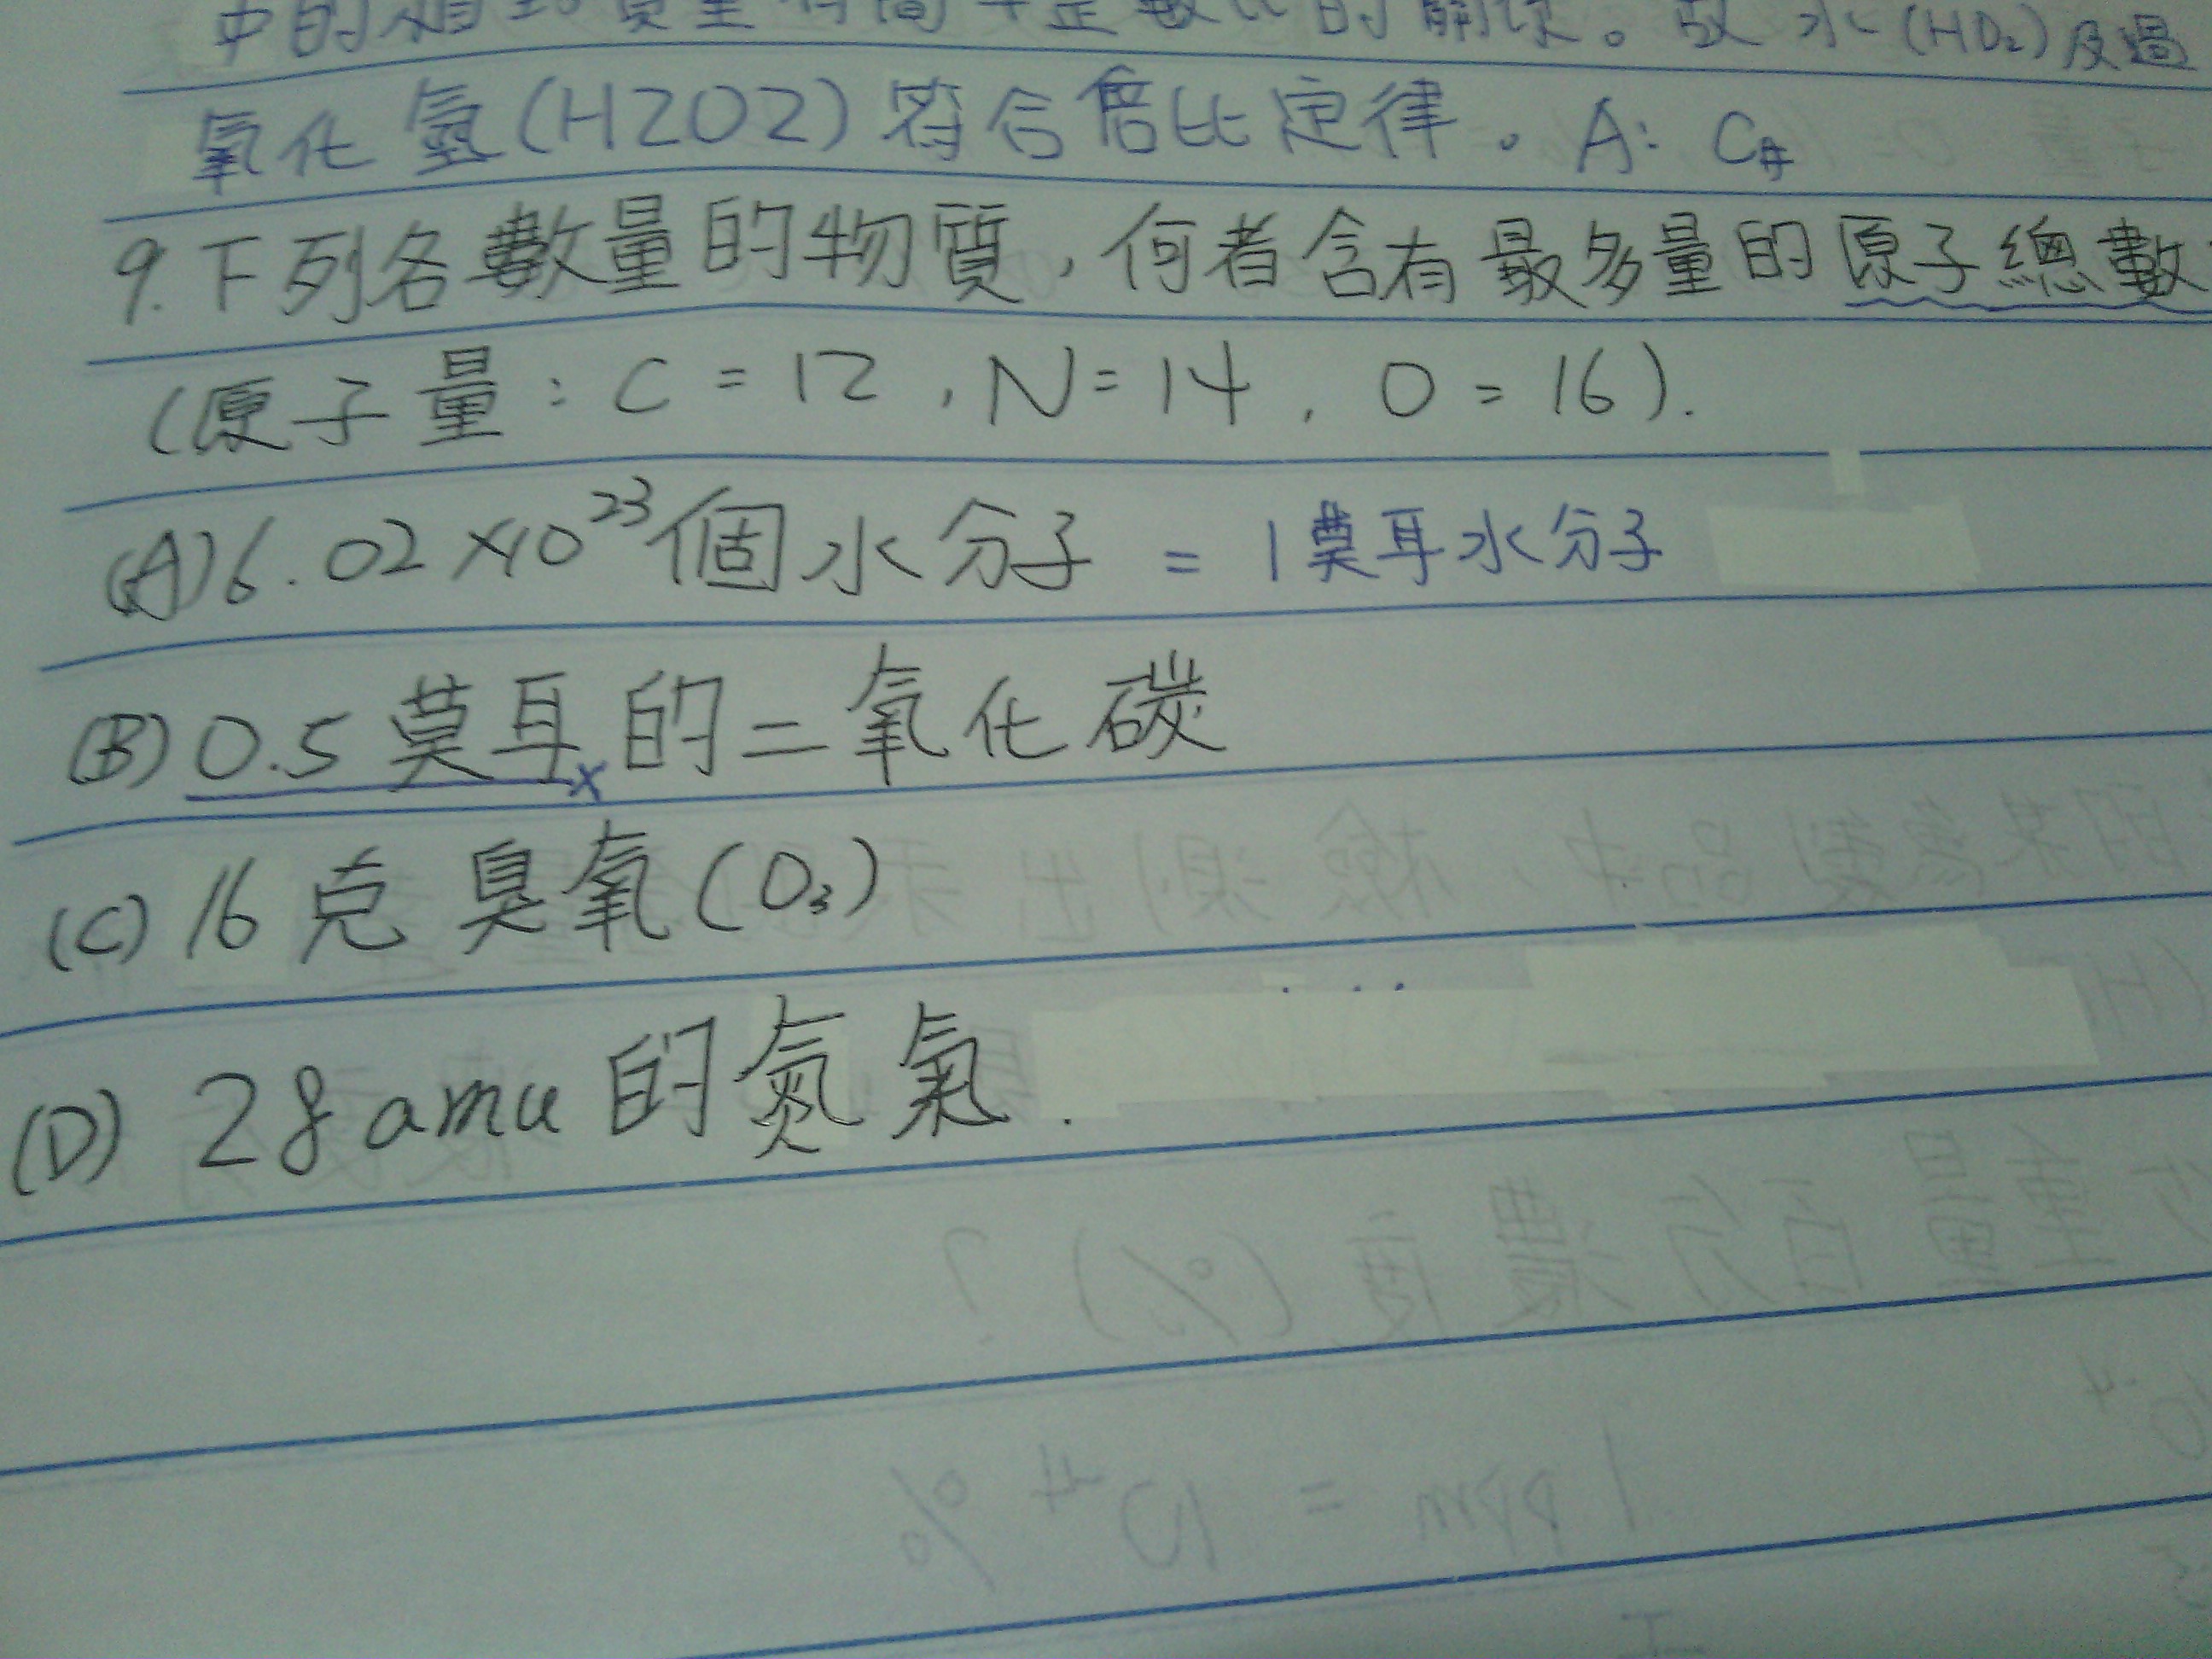 中的 質量 簡單整數比的關係。故水(HO₂)及過
氧化氫(H2O2)符合倍比定律。A: C
9.下列各數量的物質,何者含有最多量的原子總數
(原子量:C=12,N=14,O=16).
(A)6.02×10²³個水分子=1莫耳水分子
(B)0.5莫耳x的二氧化碳
(C)16克臭氧(O₃)
(D)28amu的氮氣.
重量百分濃度(%)?
1ppm=10⁻⁴%